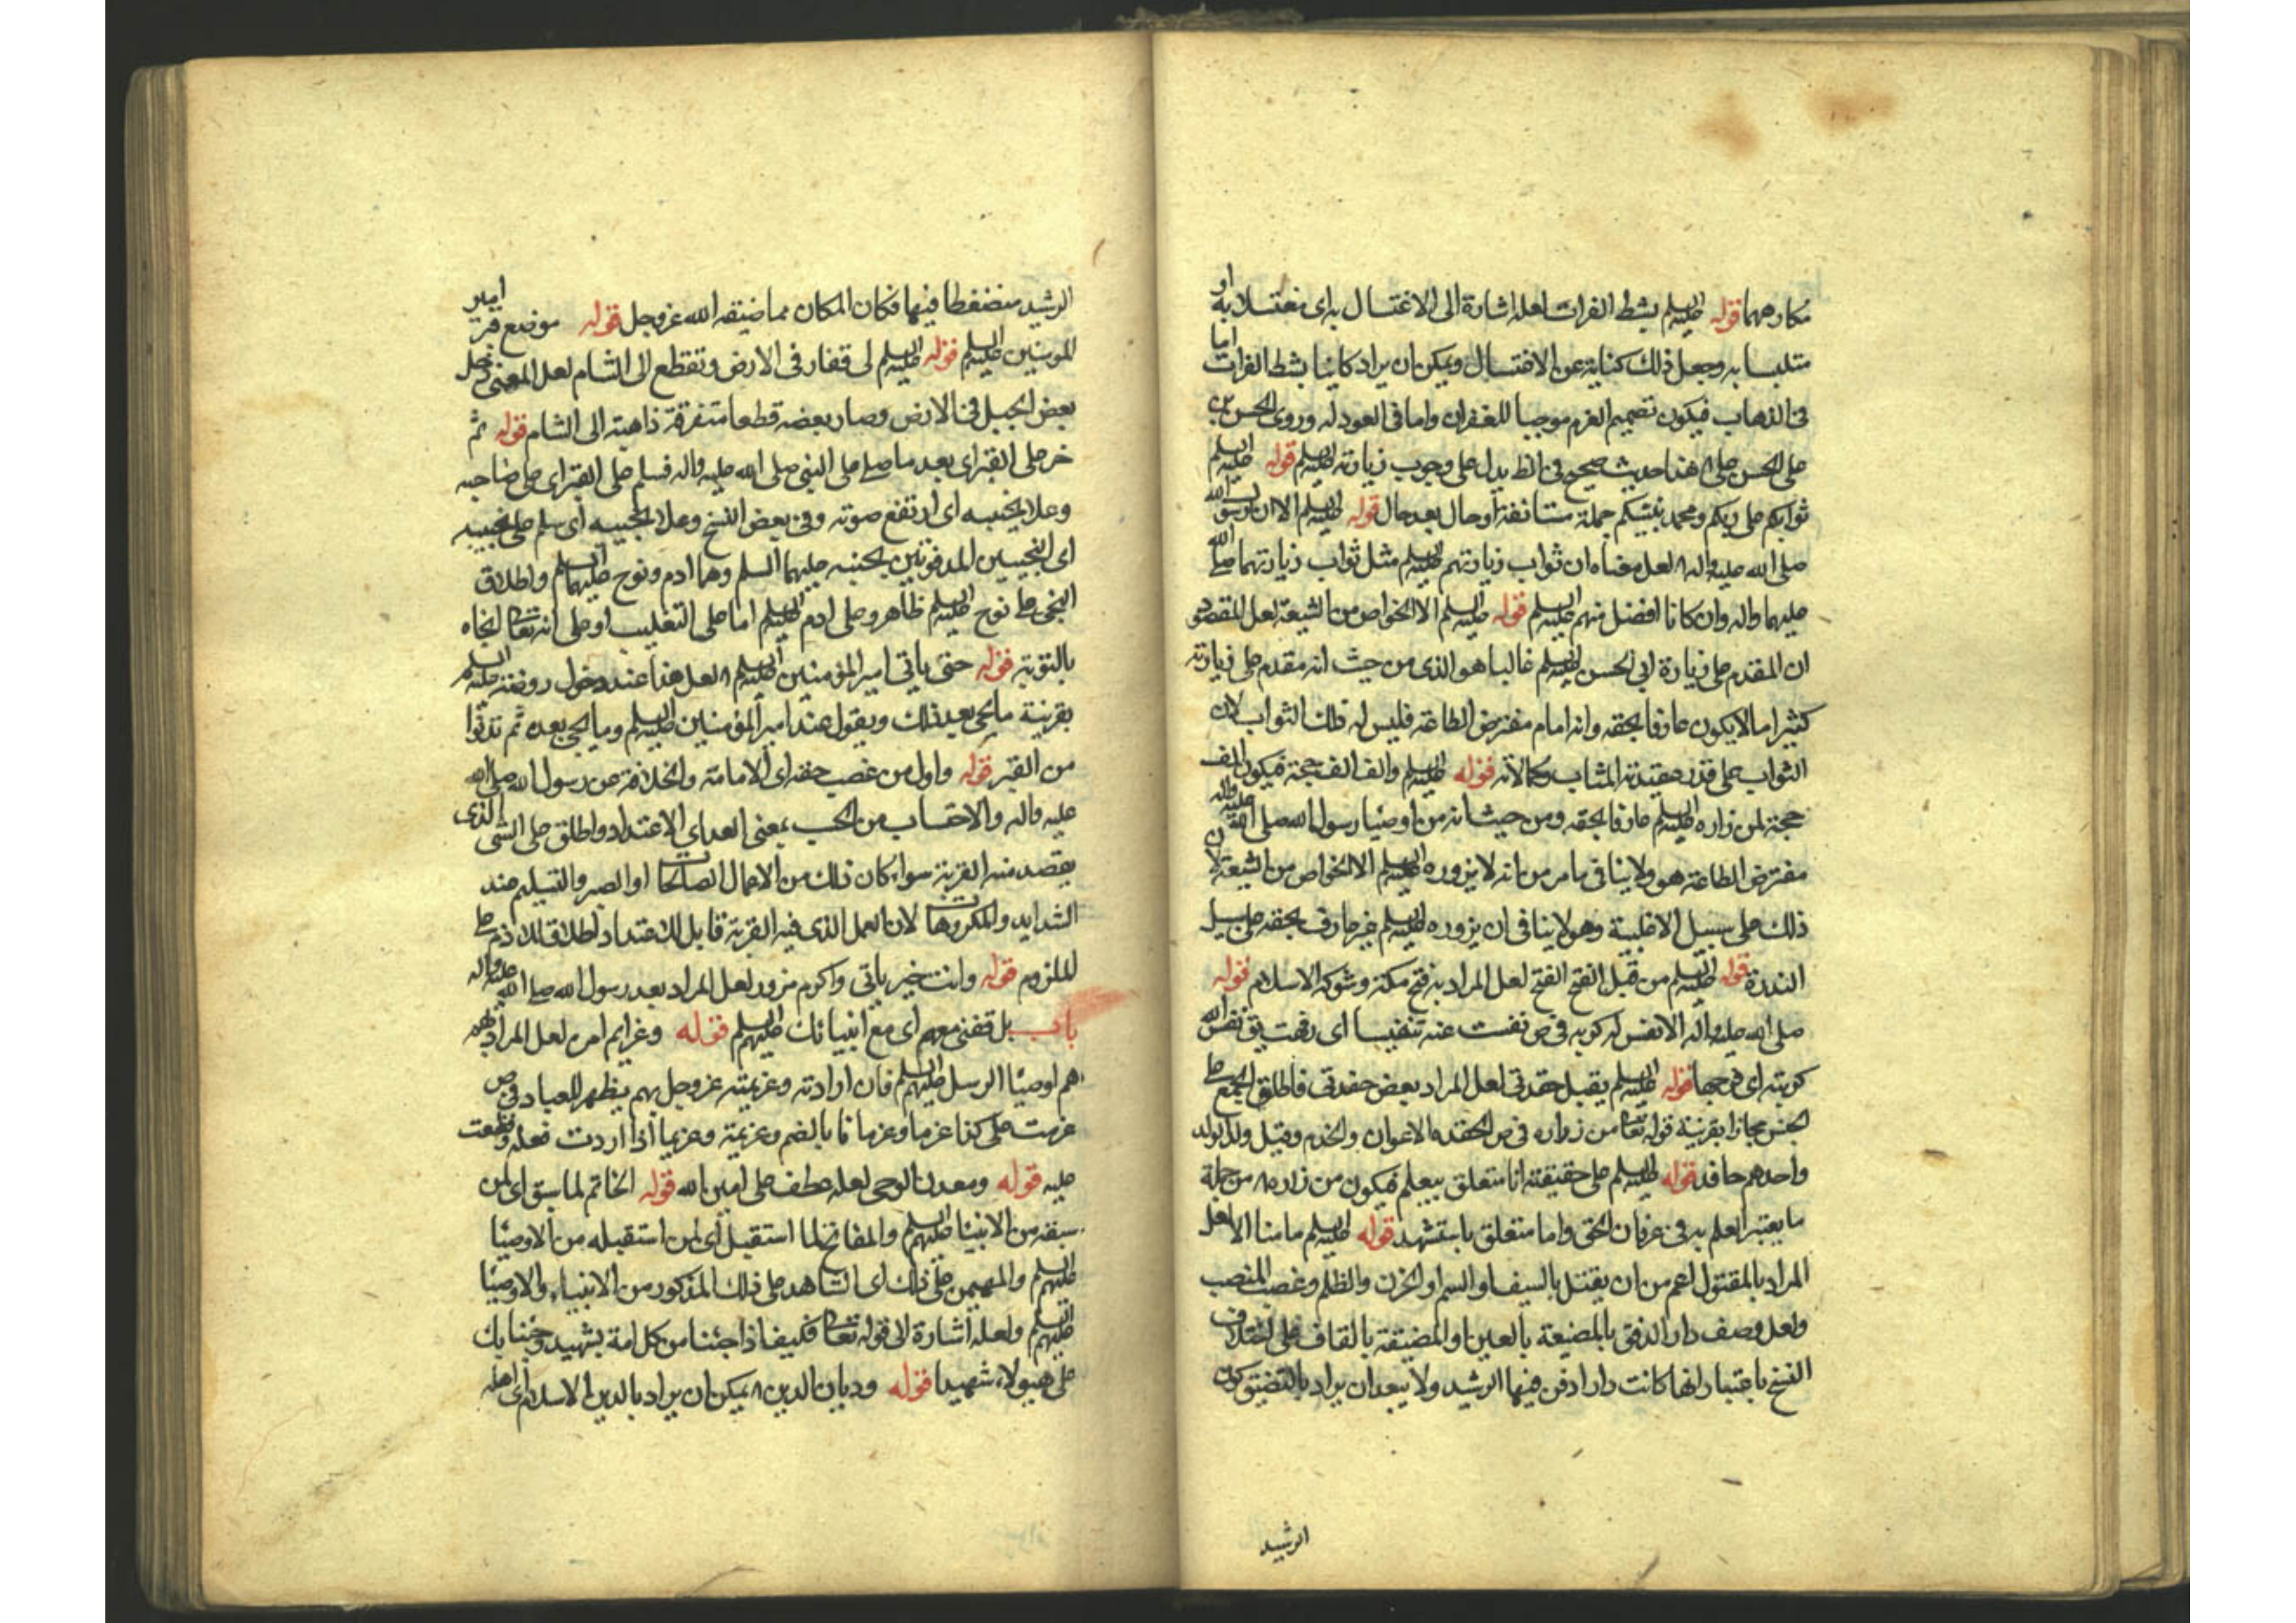 مكارهما قوله عليه السلم بشط الفرات لعله اشارة الى الاغتسال به اى مغتسلا به او
متلبسا به وجعل ذلك كناية عن الاغتسال ويمكن ان يراد كاينا بشط الفرات اما
فى الذهاب فيكون تصميم العزم موجبا للغفران واما فى العود له وروى الحسن بن
على الحسن هذا حديث صحيح يدل على وجوب زيارته عليه السلم قوله عليه السلم
ثوابكم على ربكم ومحمد نبيكم جملة مستانفة او حال بعد حال قوله عليه السلم الا ان رسول الله
صلى الله عليه واله لعل معناه ان ثواب زيارتهم عليهم السلم مثل ثواب زيارتهما صلى الله
عليهما واله وان كانا افضل منهم عليهم السلم قوله عليه السلم الا الخواص من الشيعة لعل المقصود
ان المقدم على زيارة ابى الحسن عليه السلم غالبا هو الذى من حيث انه مقدم على زيارته
كثيرا ما لا يكون عارفا بحقه وانه امام مفترض الطاعة فليس له ذلك الثواب لان
الثواب على قدر عقيدته المثاب وكمالاته قوله عليه السلم والف الف حجة فيكون الف
حجة لمن زاره عليه السلم عارفا بحقه ومن حيث انه من اوصيا رسول الله صلى الله عليه واله
مفترض الطاعة هو ولا ينافى ما مر من انه لا يزوره عليه السلم الا الخواص من الشيعة لان
ذلك على سبيل الاغلبية وهو لا ينافى ان يزوره عليه السلم غير عارف بحقه على سبيل
الندرة قوله عليه السلم من قبل الفتح الفتح لعل المراد به فتح مكة وشوكة الاسلام قوله
صلى الله عليه واله الا نفس له كربه فى ص نفست عنه تنفيسا اى رفهت يق نفس الله
كربته اى فرجها قوله عليه السلم يقبل حفدتى لعل المراد بعض حفدتى فاطلق الجمع على
الجنس مجازا بقرينة قوله تعا من زواره فى ص الحفدة الاعوان والخدم وقيل ولد الولد
واحدهم حافد قوله عليه السلم على حقيقته اما متعلق بيعلم فيكون من زاره من جملة
ما يعتبر العلم به فى عرفان الحق واما متعلق باستشهد قوله عليه السلم ما منا الا لعل
المراد بالمقتول اعم من ان يقتل بالسيف او السم او الحزن والظلم وغصب المنصب
ولعل وصف دار الدفن بالمضيعة بالعين او المضيقة بالقاف على اختلاف
النسخ باعتبار انها كانت دارا دفن فيها الرشيد ولا يبعد ان يراد بالتضيق كون
الرشيد
الرشيد منضغطا فيها فكان المكان مما ضيقه الله عز وجل قوله موضع قبر امير
المومنين عليه السلم قوله عليه السلم لى قفار فى الارض وتقطع الى الشام لعل المعنى دخل
بعض الجبل فى الارض وصار بعضه قطعا متفرقة ذاهبة الى الشام قوله ثم
خر على القبر اى بعد ما صلى على النبى صلى الله عليه واله فسلم على القبر اى على صاحبه
وعلا نحيبه اى ارتفع صوته وفى بعض النسخ وعلا نجيبيه اى سلم على نجيبيه
اى النجيبين المدفونين بجنبه عليهما السلم وهما ادم ونوح عليهما السلم واطلاق
النجى على نوح عليه السلم ظاهر وعلى ادم عليه السلم اما على التغليب او على انه تعا انجاه
بالتوبة قوله حتى ياتى امير المؤمنين عليه السلم لعل هذا عند دخول روضته عليه السلم
بقرينة ما يجى بعد ذلك ويقول عند امير المؤمنين عليه السلم وما يجى بعده ثم تدنوا
من القبر قوله واول من غصب حقه اى الامامة والخلافة عن رسول الله صلى الله
عليه واله والاحتساب من الحسب بمعنى العد اى الاعتداد واطلق على الشى الذى
يقصد منه القربة سواء كان ذلك من الاعمال الصالحات او الصبر والتسليم عند
الشدايد والمكروهات لان العمل الذى فيه القربة قابل للاعتداد اطلاقا للاذم على
للملزوم قوله وانت خير ماتى واكرم مزور لعل المراد بعد رسول الله صلى الله عليه واله
باب بل قفنى معهم اى مع انبيائك عليهم السلم قوله وعزايم امره لعل المراد بهم
هم اوصيا الرسل عليهم السلم فان ارادته وعزيمته عز وجل بهم يظهر للعباد فى ص
عزمت على كذا عزما وعزما نا بالضم وعزيمة وعزيما اذا اردت فعله وقطعت
عليه قوله ومعدن الوحى لعله عطف على امين الله قوله الخاتم لما سبق اى لمن
سبقه من الانبيا عليهم السلم والفاتح لما استقبل اى لمن استقبله من الاوصيا
عليهم السلم والمهيمن على ذلك اى الشاهد على ذلك المذكور من الانبياء والاوصيا
عليهم السلم ولعله اشارة الى قوله تعا فكيف اذا جئنا من كل امة بشهيد وجئنا بك
على هؤلاء شهيدا قوله وديان الدين يمكن ان يراد بالدين الاسلام اى اهله